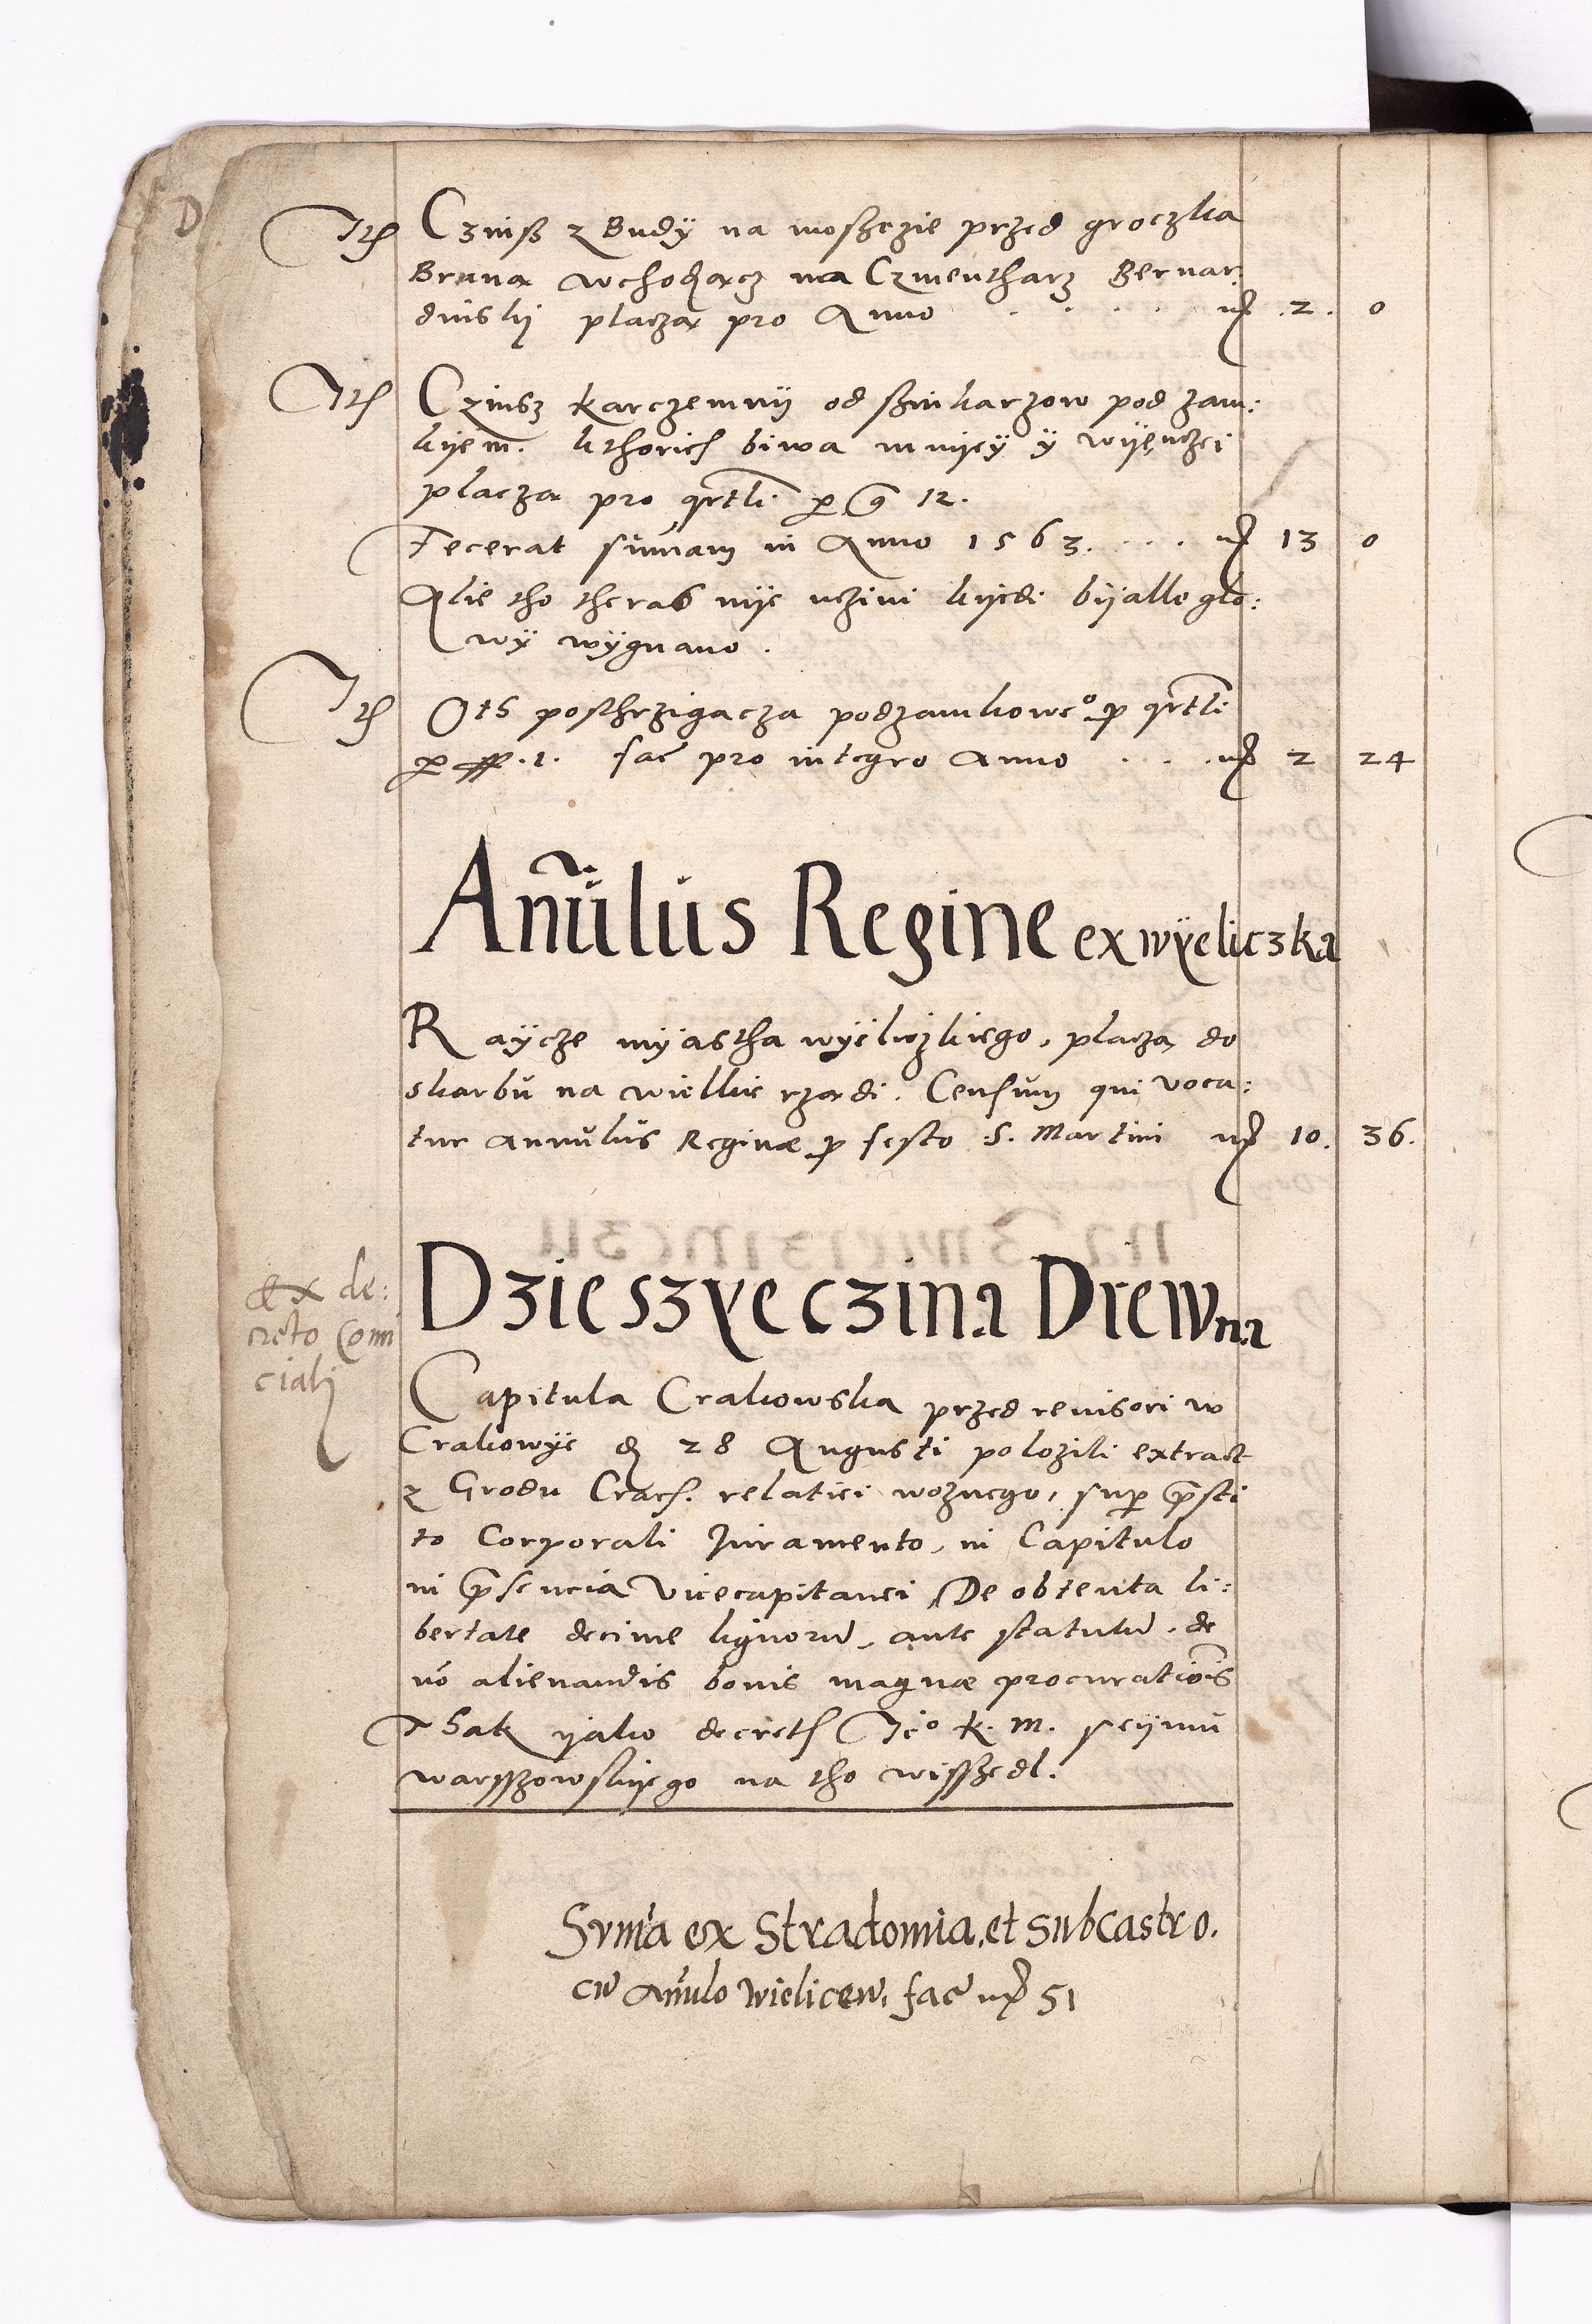 Ite Czinsz z Budy na mosczie przed groczka
Brana wchodzacz na Czmentharz Bernar
dinskÿ placza pro Anno . . . . mr 2. 0
Ite Czinsz karczemnÿ od szinkarzow pod zam:
kÿem. kthorich biwa mnÿeÿ ÿ wÿęnczei
placza pro qrtli per g 12.
Fecerat sumam in Anno 1563. . . . mr 13 0
Alie tho theras nÿe uczini kÿedi bÿalle glo:
wÿ wÿgnano.
Ite Ots posthrzigacza podzamkoweo p qrtli
per ff. 1. fac pro integro anno . . . mr 2 24
Anulus Regine ex wÿeliczka
Raÿcze mÿastha wÿeliczkiego, placza do
skarbu na wielkie rzadi. Censum qui voca:
tur annulus Reginæ p festo S. Martini mr 10. 36.
Dzieszÿeczina Drewna
ex de:
creto Comi
ciali
Capitula Crakowska przed revisori w
Crakowÿe d 28 Augusti polozili extract
z Grodu Crac. relatiei woznego, sup presti
to Corporali Juramento, in Capitulo
in presencia Vicecapitanei De obtenta li:
bertate decime lignoru, ante statutu, de
no alienandis bonis magnæ procurationis
Thak ÿako decret Jeo K. M. seÿmu
warszowskÿego na tho wisszedl.
Suma ex Stradomia, et subcastro.
cu anulo Wielicen, fac mr 51